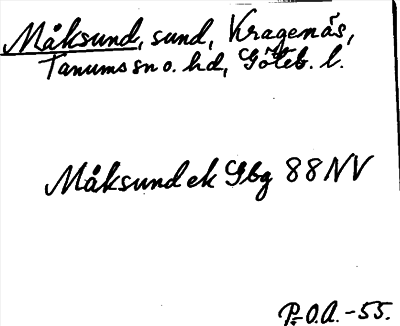 Måksund, sund, Kragenäs,
Tanums sn o. hd, Göteb. l.
Måksund ek Gbg 88 NV
P.O.A. -55.